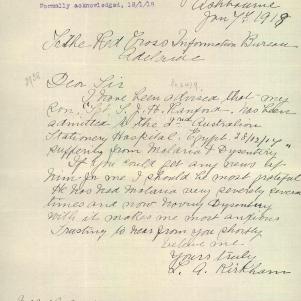 Formally acknowledged, 18/1/18
Ashbourne
Jan 7th 1918
To the Red Cross Information Bureau
Adelaide
Dear Sir
I have been advised that my
Son has been
admitted to the 2nd Australian
Stationery Hospital Egypt 28/12/17"
suffering from Malaria & Dysentery
If you could get any news of
him for me I should be most grateful
He has had Malaria very severely several
times and now having Dysentery
with it makes me most anxious
Trusting to hear from you shortly
believe me
Yours truly
L. A. Kirkham